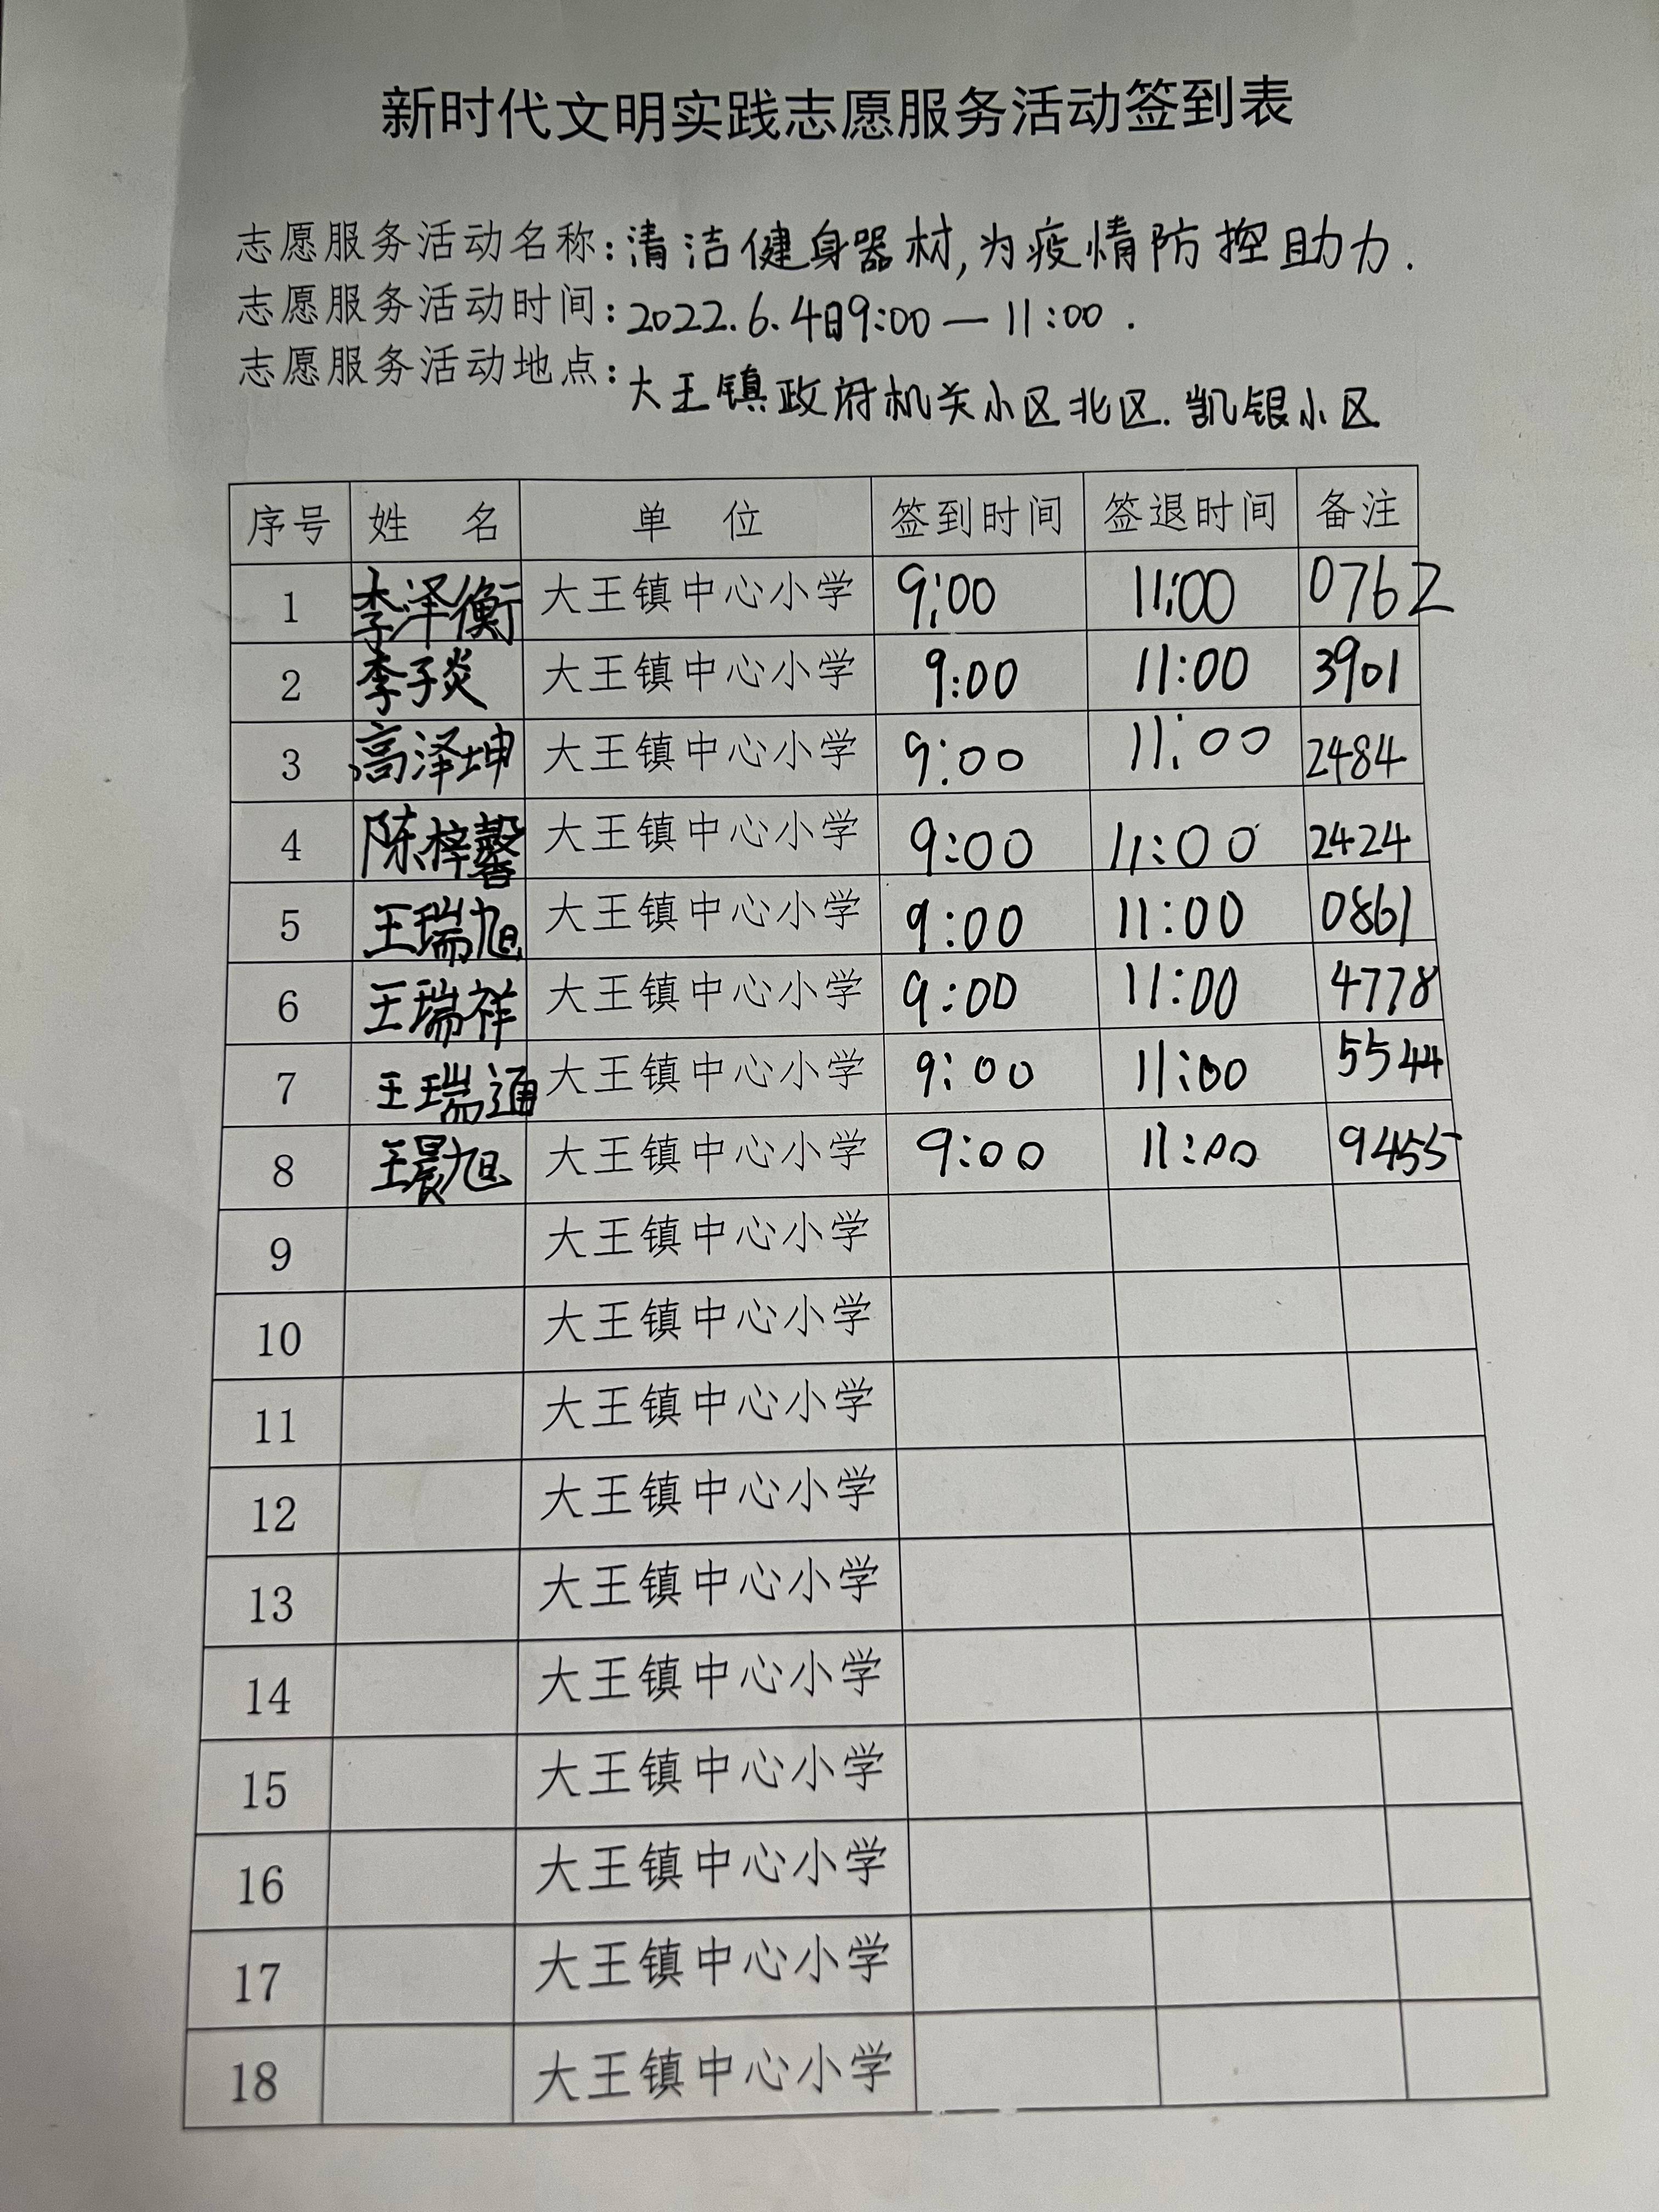 新时代文明实践志愿服务活动签到表
志愿服务活动名称:清洁健身器材,为疫情防控助力.
志愿服务活动时间:2022.6.4日9:00—11:00.
志愿服务活动地点:大王镇政府机关小区北区.凯银小区
序号 姓 名 单 位 签到时间 签退时间 备注
1 李泽衡 大王镇中心小学 9:00 11:00 0762
2 李子炎 大王镇中心小学 9:00 11:00 3901
3 高泽坤 大王镇中心小学 9:00 11:00 2484
4 陈梓馨 大王镇中心小学 9:00 11:00 2424
5 王瑞旭 大王镇中心小学 9:00 11:00 0861
6 王瑞祥 大王镇中心小学 9:00 11:00 4778
7 王瑞通 大王镇中心小学 9:00 11:00 5544
8 王晨旭 大王镇中心小学 9:00 11:00 9455
9 大王镇中心小学
10 大王镇中心小学
11 大王镇中心小学
12 大王镇中心小学
13 大王镇中心小学
14 大王镇中心小学
15 大王镇中心小学
16 大王镇中心小学
17 大王镇中心小学
18 大王镇中心小学